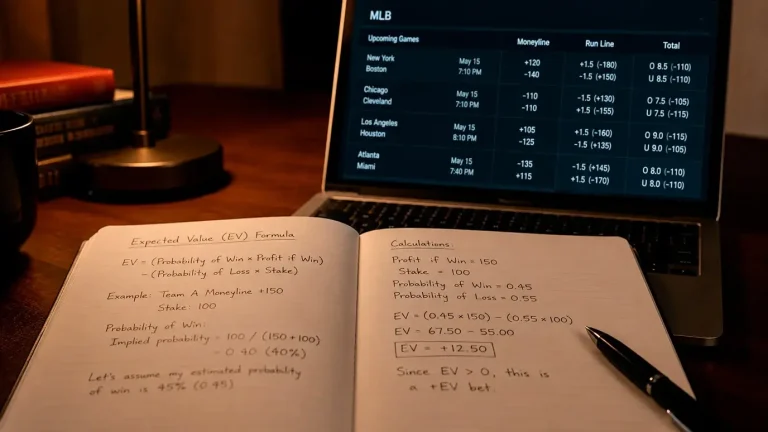 MLB
Upcoming Games Moneyline Run Line Total
New York May 15 +120 +1.5 (-180) O 8.5 (-110)
Boston 7:10 PM -140 -1.5 (+150) U 8.5 (-110)
Chicago May 15 -110 -1.5 (+130) O 7.5 (-105)
Cleveland 7:10 PM -110 +1.5 (-155) U 7.5 (-115)
Los Angeles May 15 +105 +1.5 (-160) O 9.0 (-115)
Houston 8:10 PM -125 -1.5 (+135) U 9.0 (-105)
Atlanta May 15 -135 -1.5 (+145) O 8.0 (-110)
Miami 7:40 PM +115 +1.5 (-170) U 8.0 (-110)
Expected Value (EV) Formula
EV = (Probability of Win × Profit if Win)
- (Probability of Loss × Stake)
Example: Team A Moneyline +150
Stake: 100
Probability of Win:
Implied probability = 100 / (150 + 100)
= 0.40 (40%)
Let's assume my estimated probability
of win is 45% (0.45)
Calculations:
Profit if Win = 150
Stake = 100
Probability of Win = 0.45
Probability of Loss = 0.55
EV = (0.45 × 150) - (0.55 × 100)
EV = 67.50 - 55.00
EV = +12.50
Since EV > 0, this is
a +EV bet.